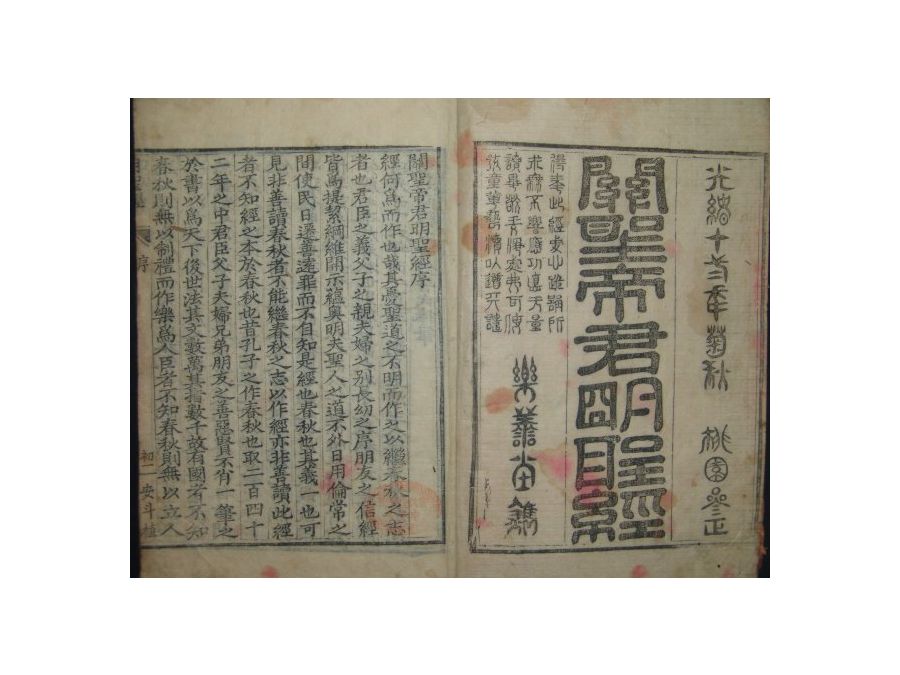 光緒十年菊秋 桃園參正
關聖帝君明聖經
求無不響應功德無量
樂善堂鐫
關聖帝君明聖經序
經何爲而作也哉其憂聖道之不明而作之以繼春秋之志
者也君臣之義父子之親夫婦之別長幼之序朋友之信經
皆爲提絜綱維闡示蘊奥明夫聖人之道不外日用倫常之
間使民日遷善遠罪而不自知是經也春秋也其義一也可
見非善讀春秋者不能繼春秋之志以作經亦非善讀此經
者不知經之本於春秋也昔孔子之作春秋也取二百四十
二年之中君臣父子夫婦兄弟朋友之善惡賢不肖一筆之
於書以爲天下後世法其文數萬其指數千故有國者不知
春秋則無以制禮而作樂爲人臣者不知春秋則無以立人
序 初一 安斗植